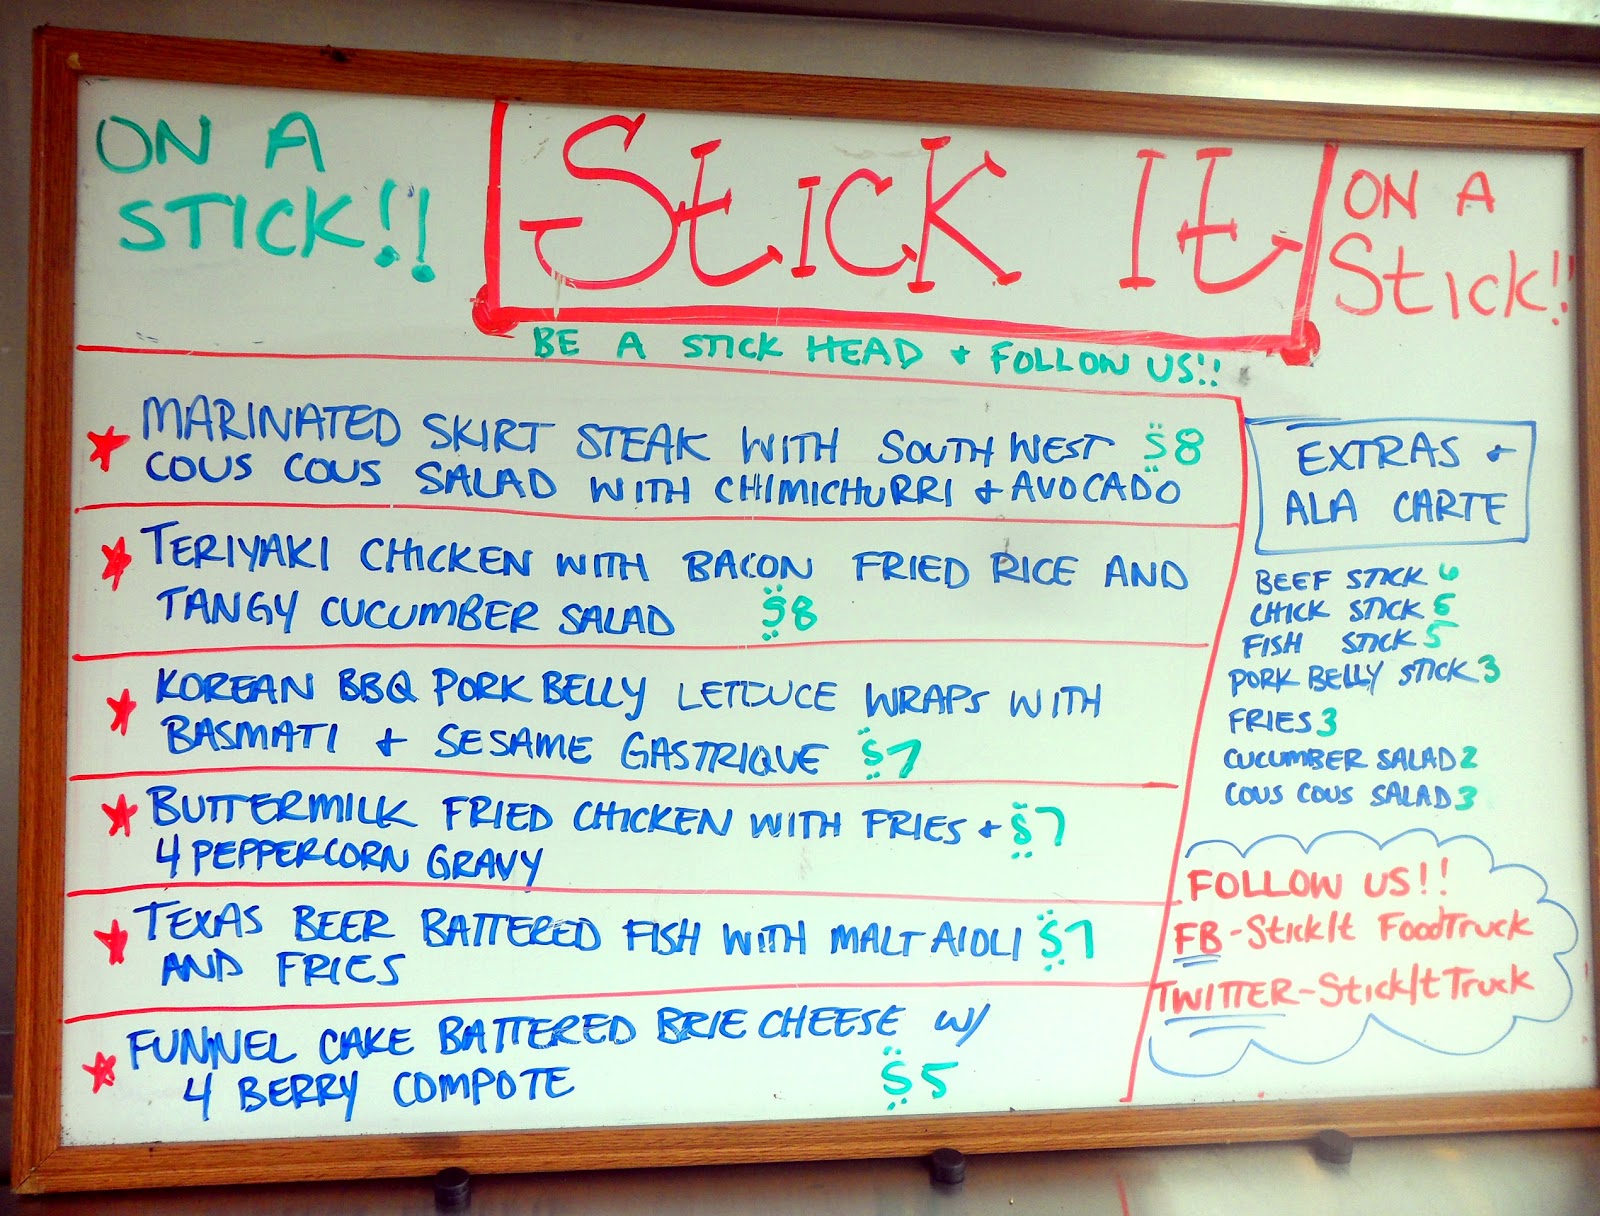 ON A
STICK!!
Stick It
ON A
Stick!!
BE A STICK HEAD + FOLLOW US!!
MARINATED SKIRT STEAK WITH SOUTH WEST $8
COUS COUS SALAD WITH CHIMICHURRI + AVOCADO
TERIYAKI CHICKEN WITH BACON FRIED RICE AND
TANGY CUCUMBER SALAD $8
KOREAN BBQ PORK BELLY LETTUCE WRAPS WITH
BASMATI + SESAME GASTRIQUE $7
BUTTERMILK FRIED CHICKEN WITH FRIES + $7
4 PEPPERCORN GRAVY
TEXAS BEER BATTERED FISH WITH MALT AIOLI $7
AND FRIES
FUNNEL CAKE BATTERED BRIE CHEESE W/
4 BERRY COMPOTE $5
EXTRAS +
ALA CARTE
BEEF STICK 6
CHICK STICK
FISH STICK 5
PORK BELLY STICK 3
FRIES 3
CUCUMBER SALAD 2
COUS COUS SALAD 3
FOLLOW US!!
FB-StickIt FoodTruck
TWITTER-StickItTruck